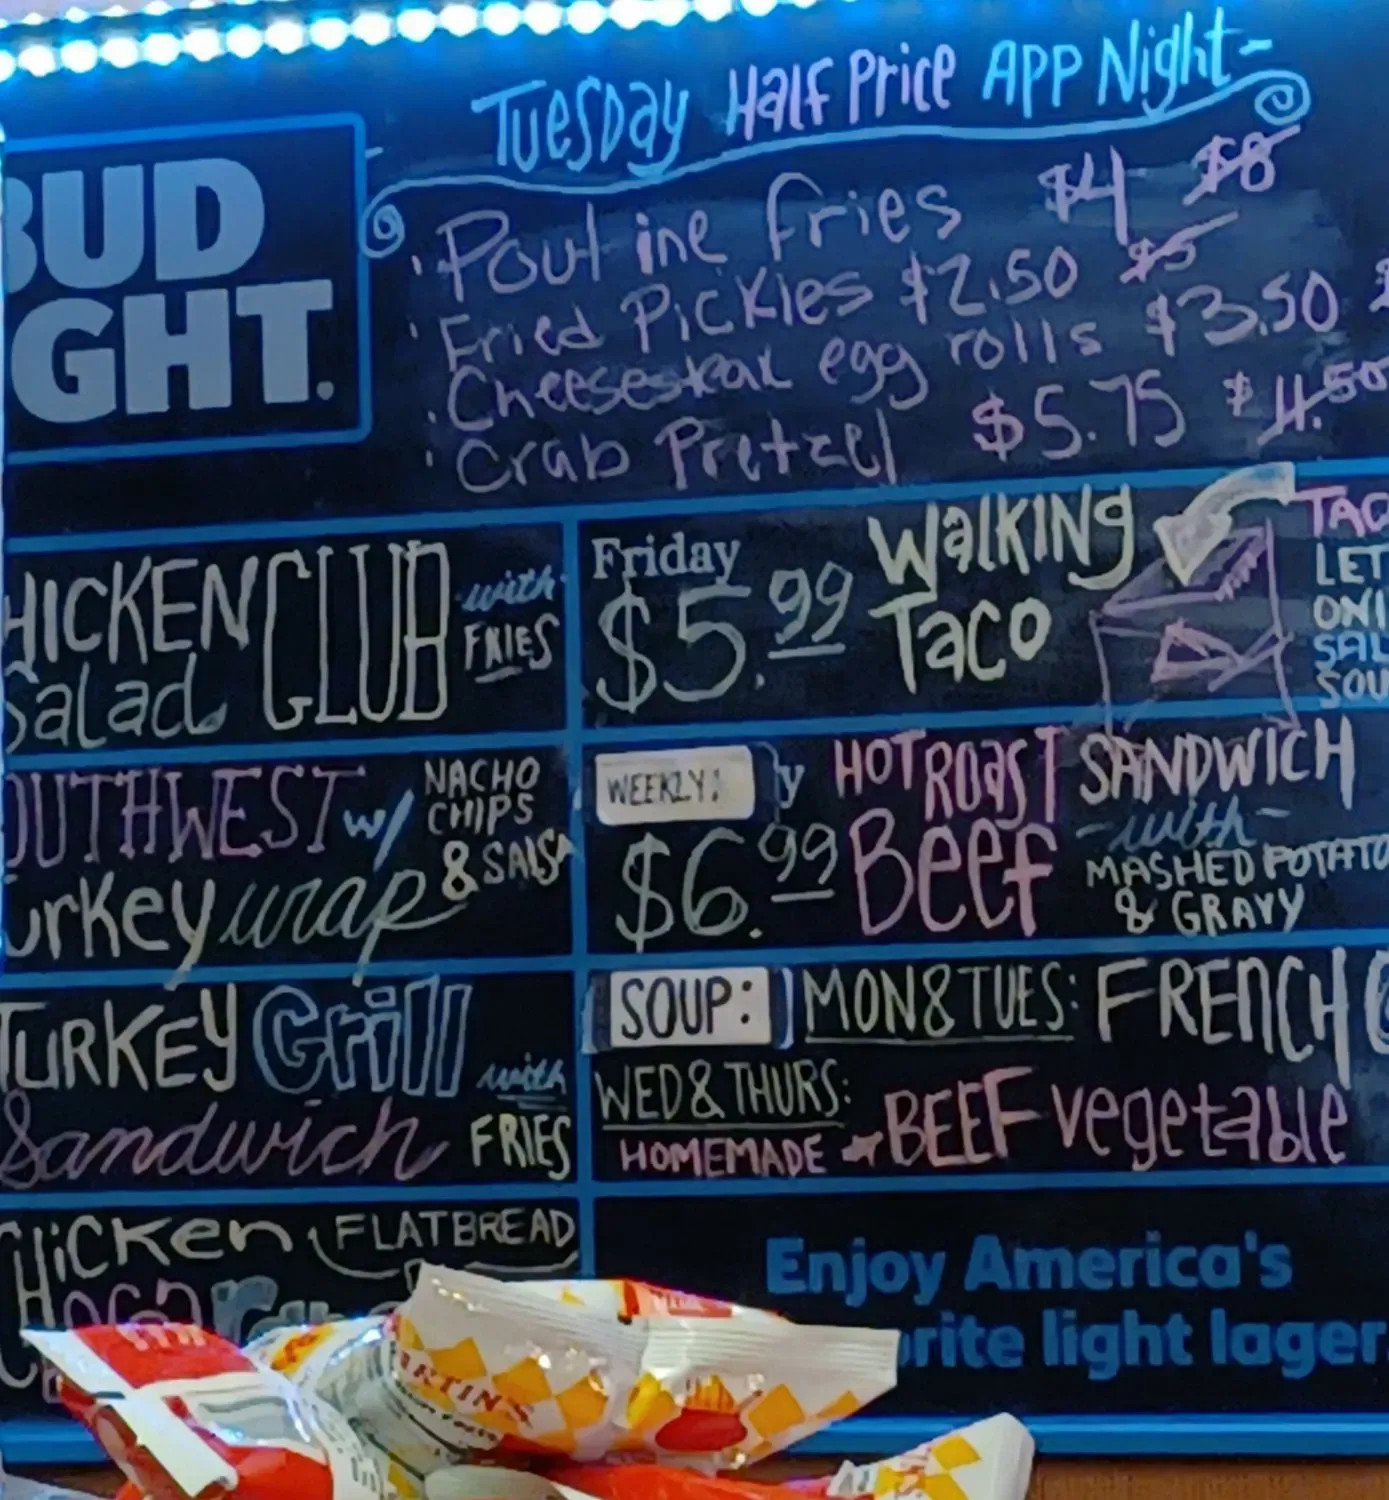 Tuesday Half Price App Night-
BUD
GHT.
· Poutine fries $4 $8
· Fried Pickles $2.50 $5
· Cheesesteak egg rolls $3.50
· Crab Pretzel $5.75 $11.50
HICKEN CLUB with
Salad FRIES
Friday Walking
$5.99 Taco
TAC
LET
ONI
SAL
SOU
OUTHWEST w/ NACHO CHIPS
urkey wrap & SALSA
WEEKLY! y HOT ROAST SANDWICH
$6.99 Beef -with-
MASHED POTATO
& GRAVY
TURKEY Grill with
Sandwich FRIES
SOUP: MON & TUES: FRENCH
WED & THURS:
HOMEMADE BEEF vegetable
CHicken FLATBREAD
Enjoy America's
rite light lager.
MARTIN'S